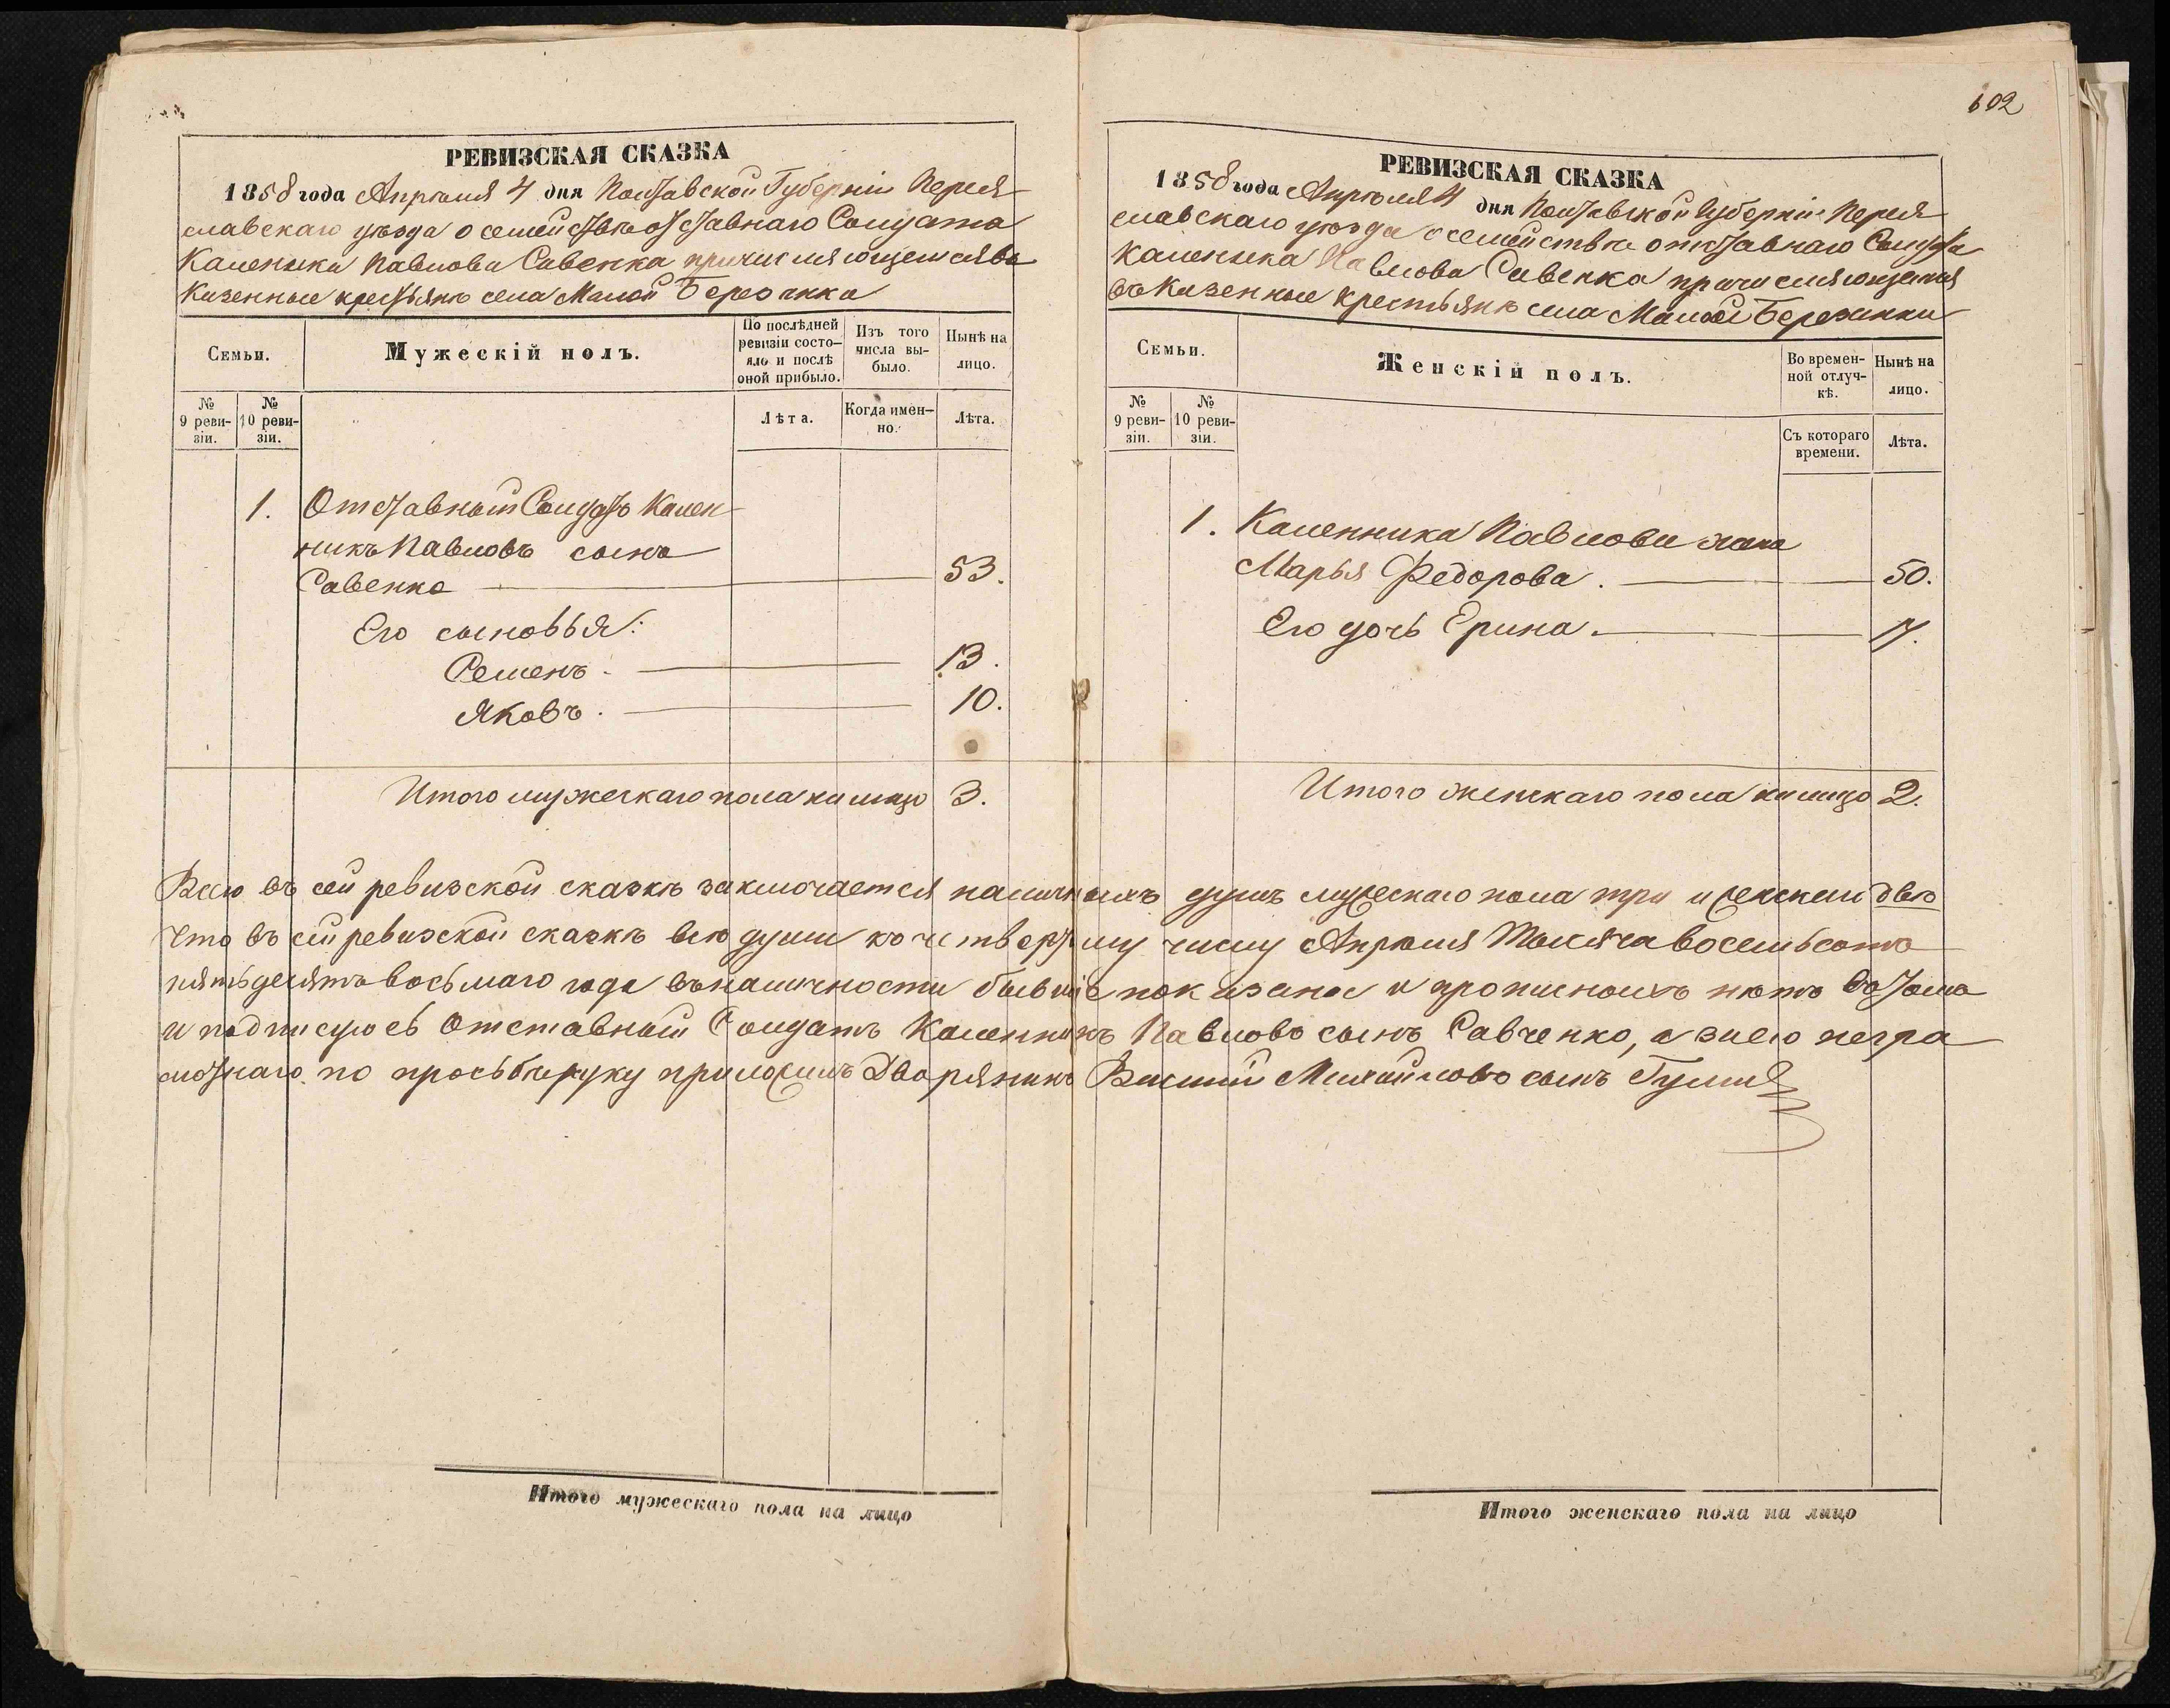 РЕВИЗСКАЯ СКАЗКА
1858 года Апрѣля 4 дня Полтавской Губерніи Перея
славскаго уѣзда о семействѣ отставнаго Солдата
Каленика Павлова Савенка причисляющемся въ
Казенные крестьянѣ села Малой Березанки
Семьи.
Мужескій полъ.
По послѣдней ревизіи состояло и послѣ оной прибыло.
Изъ того числа выбыло.
Нынѣ на лицо.
№ 9 ревизіи.
№ 10 ревизіи.
Лѣта.
Когда именно.
Лѣта.
1. Отставный Солдатъ Кален
никъ Павловъ сынъ
Савенко 53.
Его сыновья:
Семенъ. 13.
Яковъ. 10.
Итого мужескаго пола на лицо 3.
602
РЕВИЗСКАЯ СКАЗКА
1858 года Апрѣля 4 дня Полтавской Губерніи Перея
славскаго уѣзда о семействѣ отставнаго Солдата
Каленика Павлова Савенка причисляющемся
въ Казенные крестьянѣ села Малой Березанки
Семьи.
Женскій полъ.
Во временной отлучкѣ.
Нынѣ на лицо.
№ 9 ревизіи.
№ 10 ревизіи.
Съ котораго времени.
Лѣта.
1. Каленника Павлова жена
Марья Федорова. 50.
Его дочь Ерина. 17.
Итого женскаго пола на лицо 2.
Всего въ сей ревизской сказкѣ заключается наличныхъ душъ мужескаго пола три и женскаго двѣ
Что въ сей ревизской сказкѣ всѣ души къ четвертому числу Апрѣля Тысяча восемьсотъ
пятьдесятъ восьмаго года въ наличности бывшіе показаны и прописныхъ нѣтъ въ томъ
и подписуюсь Отставный Солдатъ Каленникъ Павловъ сынъ Савченко, а за его негра
мотнаго по прозьбѣ руку приложилъ Дворянинъ Василій Михайловъ сынъ
Итого мужескаго пола на лицо
Итого женскаго пола на лицо